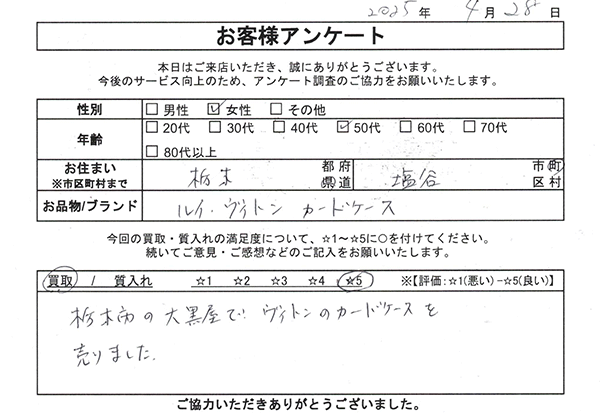 2025 年 4 月 28 日
お客様アンケート
本日はご来店いただき、誠にありがとうございます。
今後のサービス向上のため、アンケート調査のご協力をお願いいたします。
性別 □ 男性 ☑ 女性 □ その他
年齢 □ 20代 □ 30代 □ 40代 ☑ 50代 □ 60代 □ 70代
□ 80代以上
お住まい ※市区町村まで 栃木 都府県道 塩谷 市町区村
お品物/ブランド ルイ・ヴィトン カードケース
今回の買取・質入れの満足度について、☆1～☆5に○を付けてください。
続いてご意見・ご感想などのご記入をお願いいたします。
買取 / 質入れ ☆1 ☆2 ☆3 ☆4 ☆5 ※【評価:☆1(悪い)-☆5(良い)】
栃木市の大黒屋で ヴィトンのカードケースを
売りました.
ご協力いただきありがとうございました。